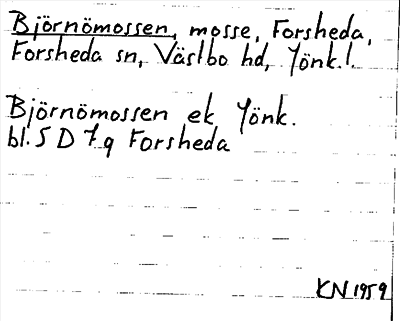 Björnömossen, mosse, Forsheda,
Forsheda sn, Västbo hd, Jönk.l.
Björnömossen ek Jönk.
bl. 5 D 7 g Forsheda
KN 1959